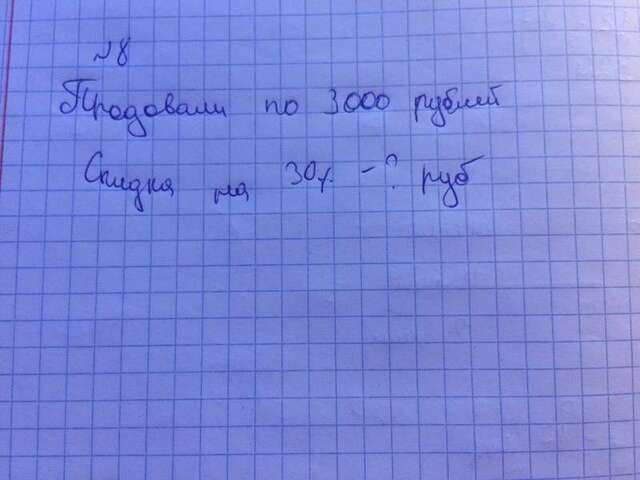 №8
Продовали по 3000 рублей
Скидка на 30% - ? руб